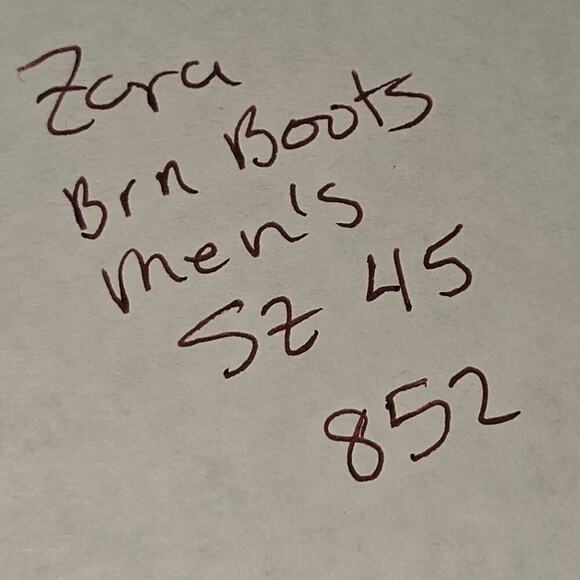 Zara
Brn Boots
Men's
Sz 45
852